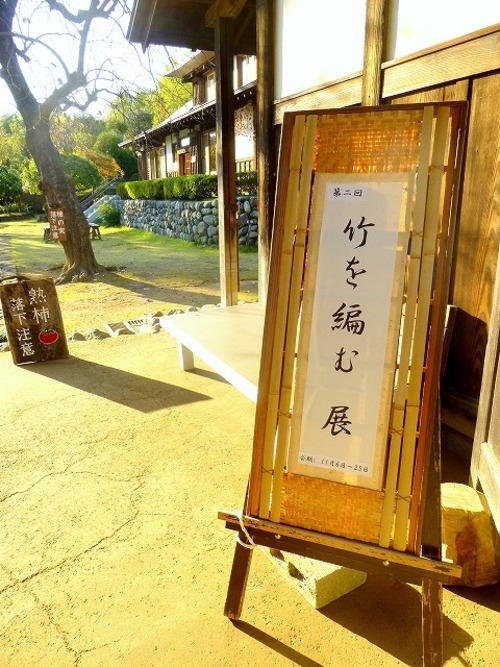 第二回
竹を編む展
会期:11月6日~23日
熟柿
落下注意